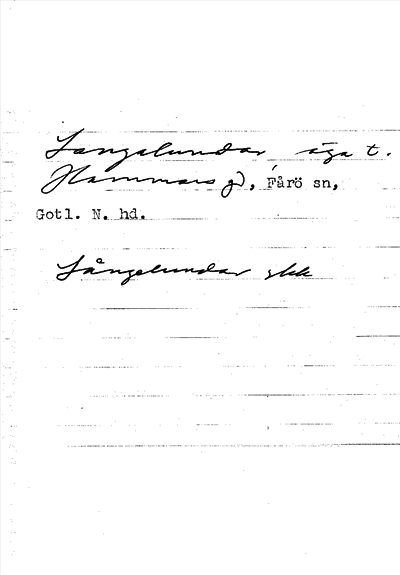 Langalundar äga t.
Hammars gd, Fårö sn,
Gotl. N. hd.
Långelundar skk